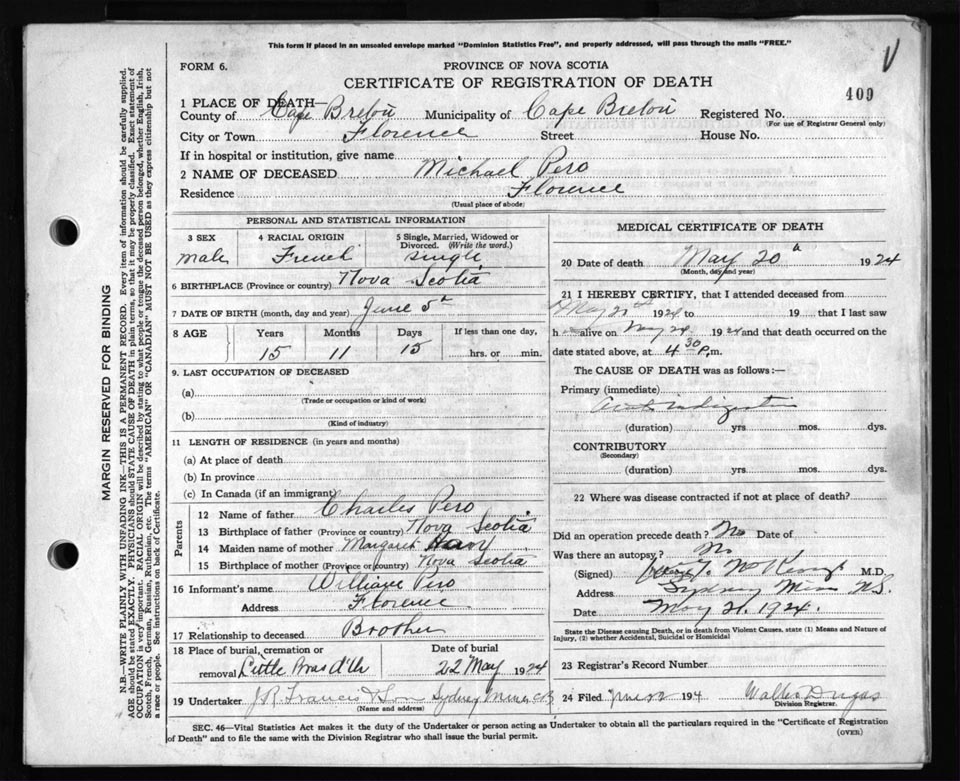 This form if placed in an unsealed envelope marked "Dominion Statistics Free", and properly addressed, will pass through the mails "FREE."
FORM 6.
PROVINCE OF NOVA SCOTIA
CERTIFICATE OF REGISTRATION OF DEATH
V
409
1 PLACE OF DEATH—
County of Cape Breton Municipality of Cape Breton Registered No.
(For use of Registrar General only)
City or Town Florence Street House No.
If in hospital or institution, give name
2 NAME OF DECEASED Michael Pero
Residence Florence
(Usual place of abode)
PERSONAL AND STATISTICAL INFORMATION
3 SEX 4 RACIAL ORIGIN 5 Single, Married, Widowed or Divorced. (Write the word.)
male French single
6 BIRTHPLACE (Province or country) Nova Scotia
7 DATE OF BIRTH (month, day and year) June 5
8 AGE Years Months Days If less than one day,
15 11 15 hrs. or min.
9. LAST OCCUPATION OF DECEASED
(a)
(Trade or occupation or kind of work)
(b)
(Kind of industry)
11 LENGTH OF RESIDENCE (in years and months)
(a) At place of death
(b) In province
(c) In Canada (if an immigrant)
Parents
12 Name of father Charles Pero
13 Birthplace of father (Province or country) Nova Scotia
14 Maiden name of mother Margaret
15 Birthplace of mother (Province or country) Nova Scotia
16 Informant's name William Pero
Address Florence
17 Relationship to deceased Brother
18 Place of burial, cremation or removal Little Bras d'Or
Date of burial
22 May 1924
19 Undertaker J.R. Francis & Son Sydney Mines C.B
(Name and address)
MEDICAL CERTIFICATE OF DEATH
20 Date of death May 20 1924
(Month, day and year)
21 I HEREBY CERTIFY, that I attended deceased from
May 1924 to 19 that I last saw
h alive on May 1924 and that death occurred on
date stated above, at 4 30 P.m.
The CAUSE OF DEATH was as follows:—
Primary (immediate)
Acute Indigestion
(duration) yrs mos. dys.
CONTRIBUTORY
(Secondary)
(duration) yrs mos. dys.
22 Where was disease contracted if not at place of death?
Did an operation precede death? No Date of
Was there an autopsy? No
(Signed) M.D.
Address Sydney Mines N.S.
Date May 21. 1924.
State the Disease causing Death, or in death from Violent Causes, state (1) Means and Nature of Injury, (2) whether Accidental, Suicidal or Homicidal
23 Registrar's Record Number
24 Filed 194 Walter Dugas
Division Registrar.
SEC. 46—Vital Statistics Act makes it the duty of the Undertaker or person acting as Undertaker to obtain all the particulars required in the "Certificate of Registration of Death" and to file the same with the Division Registrar who shall issue the burial permit.
(OVER)
MARGIN RESERVED FOR BINDING
N.B.—WRITE PLAINLY WITH UNFADING INK—THIS IS A PERMANENT RECORD. Every item of information should be carefully supplied.
AGE should be stated EXACTLY. PHYSICIANS should STATE CAUSE OF DEATH in plain terms, so that it may be properly classified. Exact statement of
OCCUPATION is very important. RACIAL ORIGIN will be described by stating to what people or tongue the deceased person belonged, whether English, Irish,
Scotch, French, German, Russian, Ruthenian, etc. The terms "AMERICAN" OR "CANADIAN" MUST NOT BE USED as they express citizenship but not
a race or people. See instructions on back of Certificate.